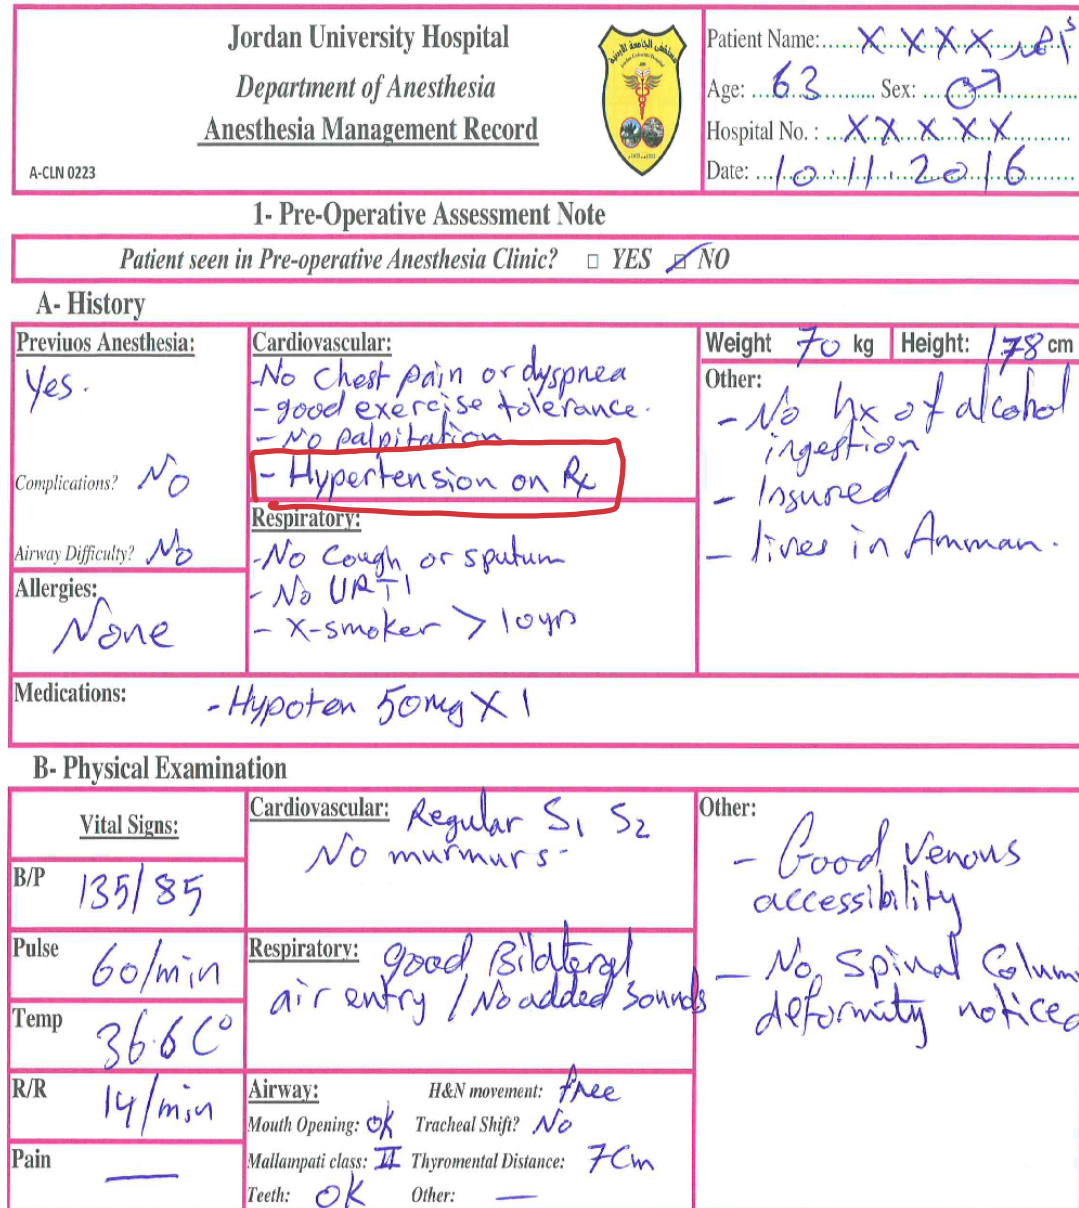 Jordan University Hospital
Department of Anesthesia
Anesthesia Management Record
A-CLN 0223
Patient Name: X X X X أحمد
Age: 63 Sex: ♂
Hospital No. : X X X X X
Date: 10.11.2016
1- Pre-Operative Assessment Note
Patient seen in Pre-operative Anesthesia Clinic? □ YES ☑ NO
A- History
Previuos Anesthesia:
Yes.
Complications? No
Airway Difficulty? No
Allergies:
None
Cardiovascular:
-No chest pain or dyspnea
- good exercise tolerance.
- No palpitation
- Hypertension on Rx
Respiratory:
-No cough or sputum
- No URTI
- X-smoker > 10 yrs
Weight 70 kg Height: 178 cm
Other:
- No hx of alcohol
ingestion
- Insured
- lives in Amman.
Medications: - Hypoten 50mg X 1
B- Physical Examination
Vital Signs:
B/P 135/85
Pulse 60/min
Temp 36.6 C°
R/R 14/min
Pain —
Cardiovascular: Regular S1 S2
No murmurs-
Respiratory: good Bilateral
air entry / No added sounds
Airway: H&N movement: free
Mouth Opening: OK Tracheal Shift? No
Mallampati class: II Thyromental Distance: 7Cm
Teeth: OK Other: —
Other:
- Good Venous
accessibility
- No Spinal Column
deformity noticed